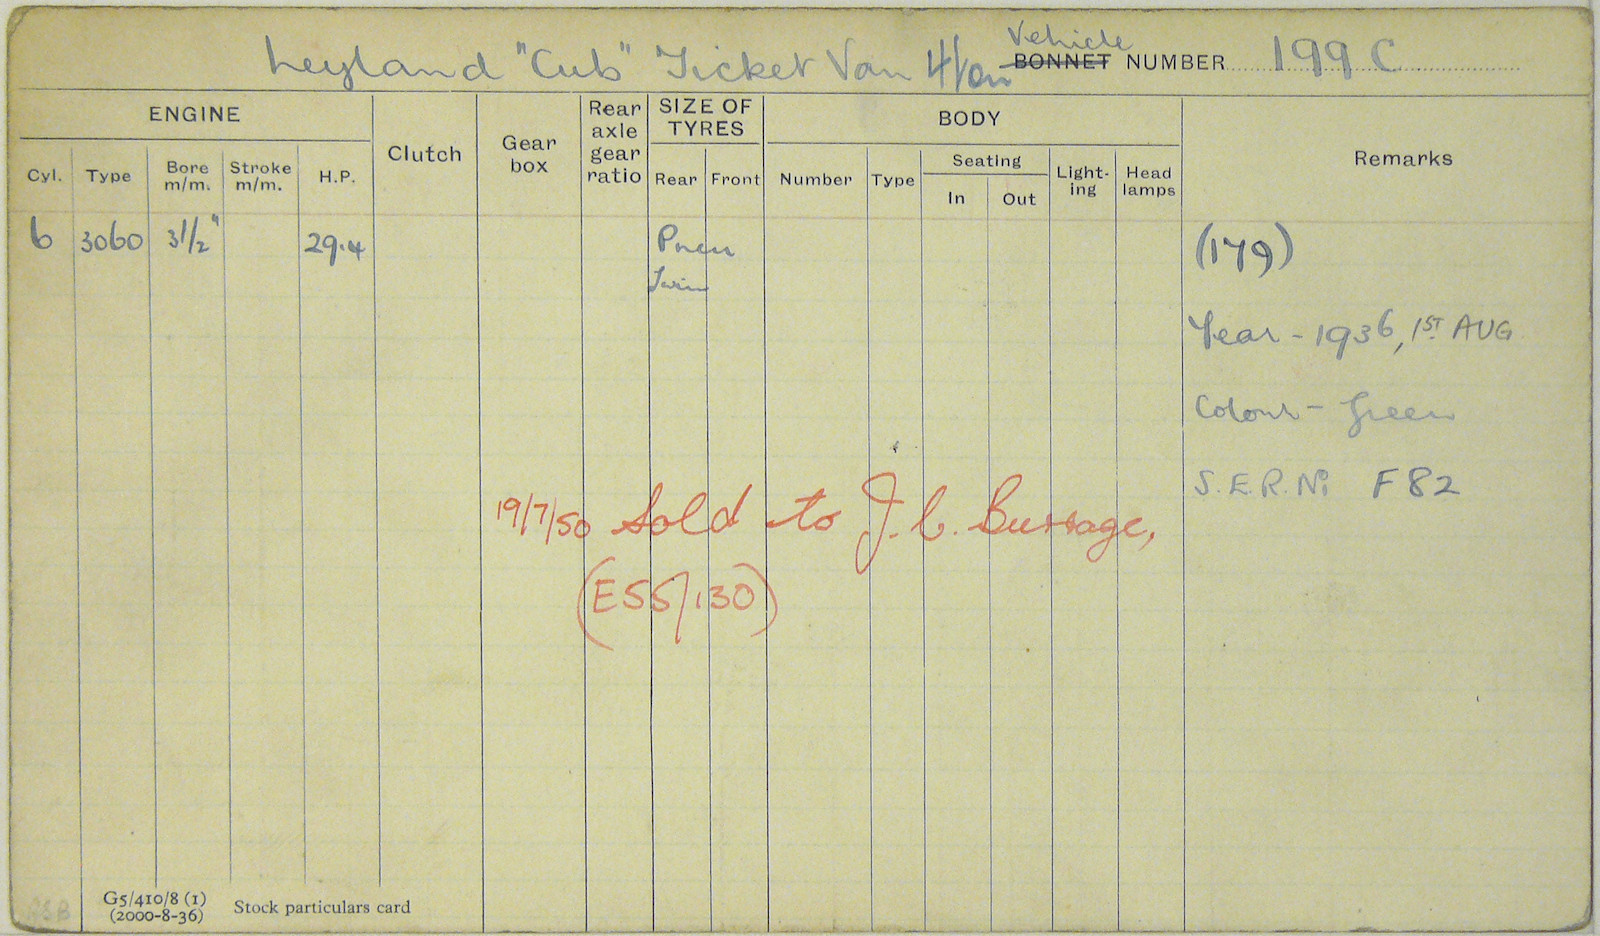 Leyland "Cub" Ticket Van 4/on Vehicle BONNET NUMBER 199 C
ENGINE Clutch Gear box Rear axle gear ratio SIZE OF TYRES BODY Remarks
Cyl. Type Bore m/m. Stroke m/m. H.P. Rear Front Number Type Seating In Out Light-ing Head lamps
6 3060 3 1/2" 29.4 Pneu (179)
Twin
Year - 1936, 1ST AUG
Colour - Green
S.E.R. No F82
19/7/50 Sold to J. C. Bussage,
(ESS/130)
G5/410/8 (1)
(2000-8-36) Stock particulars card